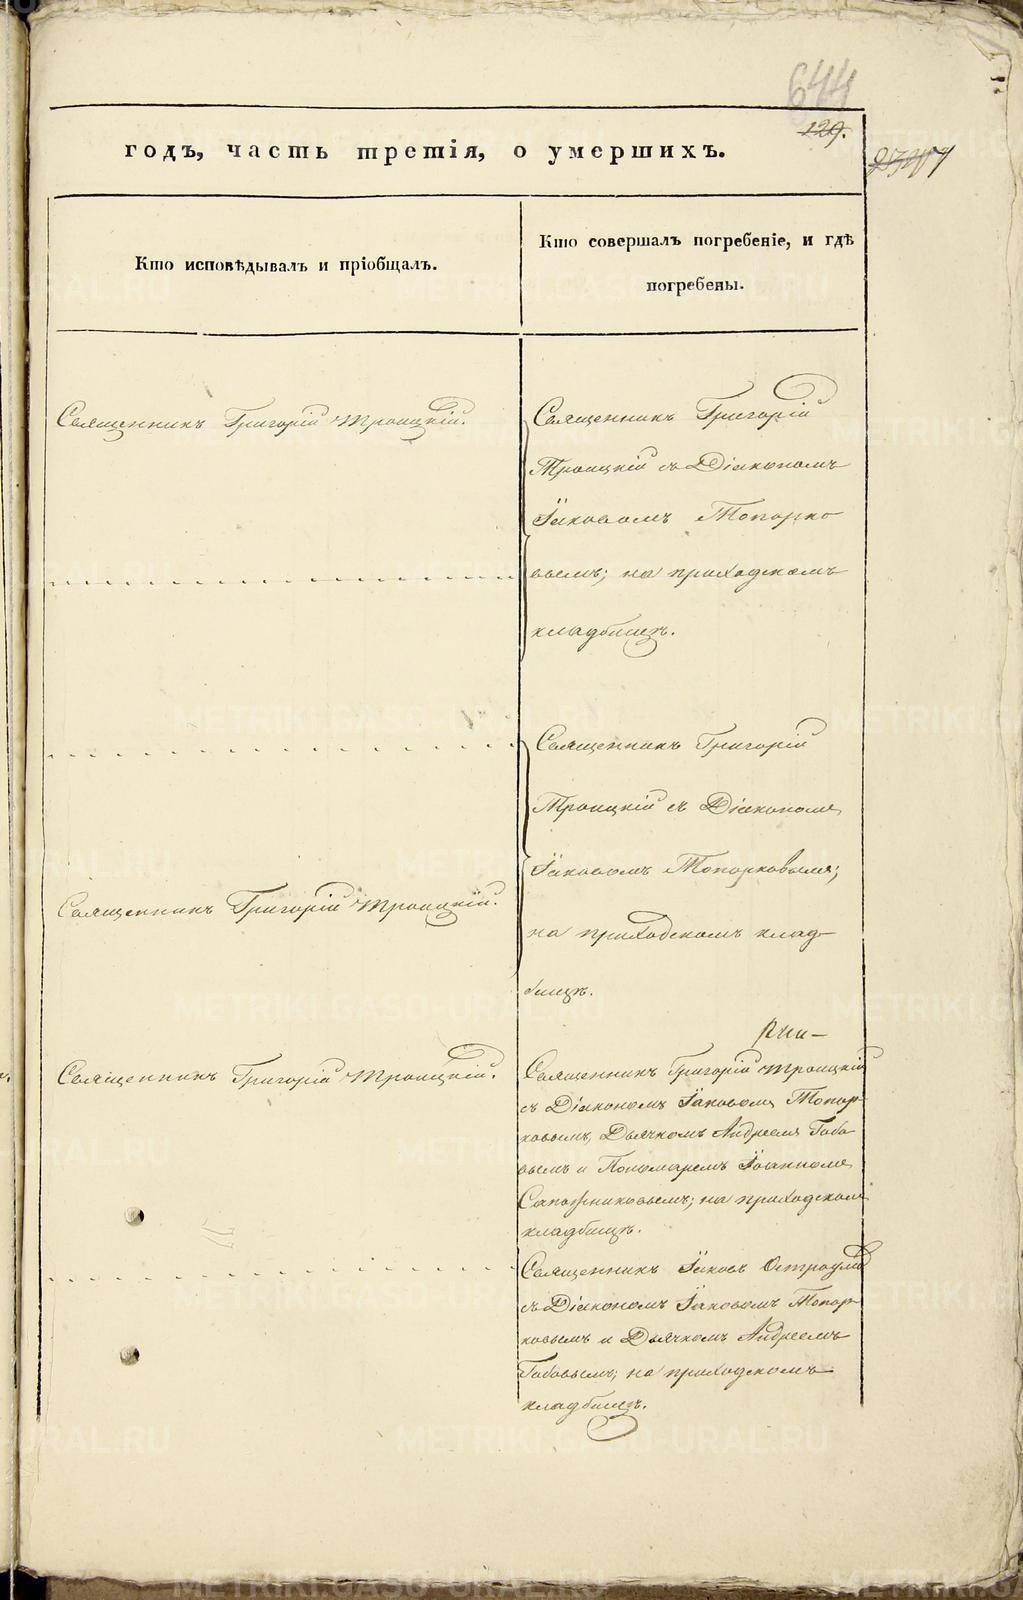 644
129.
годъ, часть третія, о умершихъ.
Кто исповѣдывалъ и пріобщалъ.
Кто совершалъ погребеніе, и гдѣ
погребены.
Священникъ Григорій Троицкій.
Священникъ Григорій
Троицкій съ Діакономъ
Іаковомъ Топорко
вымъ; на приходскомъ
кладбищѣ.
Священникъ Григорій
Троицкій съ Діакономъ
Іаковомъ Топорковымъ;
на приходскомъ клад-
бищѣ.
Священникъ Григорій Троицкій.
Священникъ Григорій Троицкій.
Священникъ Григорій Троицкій
съ Діакономъ Іаковомъ Топор-
ковымъ, Дьячкомъ Андреемъ Бабо
вымъ и Пономаремъ Іоанномъ
Сапожниковымъ; на приходскомъ
кладбищѣ.
Священникъ Іаковъ
съ Діакономъ Іаковомъ Топор-
ковымъ и Дьячкомъ Андреемъ
Бабовымъ; на приходскомъ
кладбищѣ.
METRIKI.GASO-URAL.RU